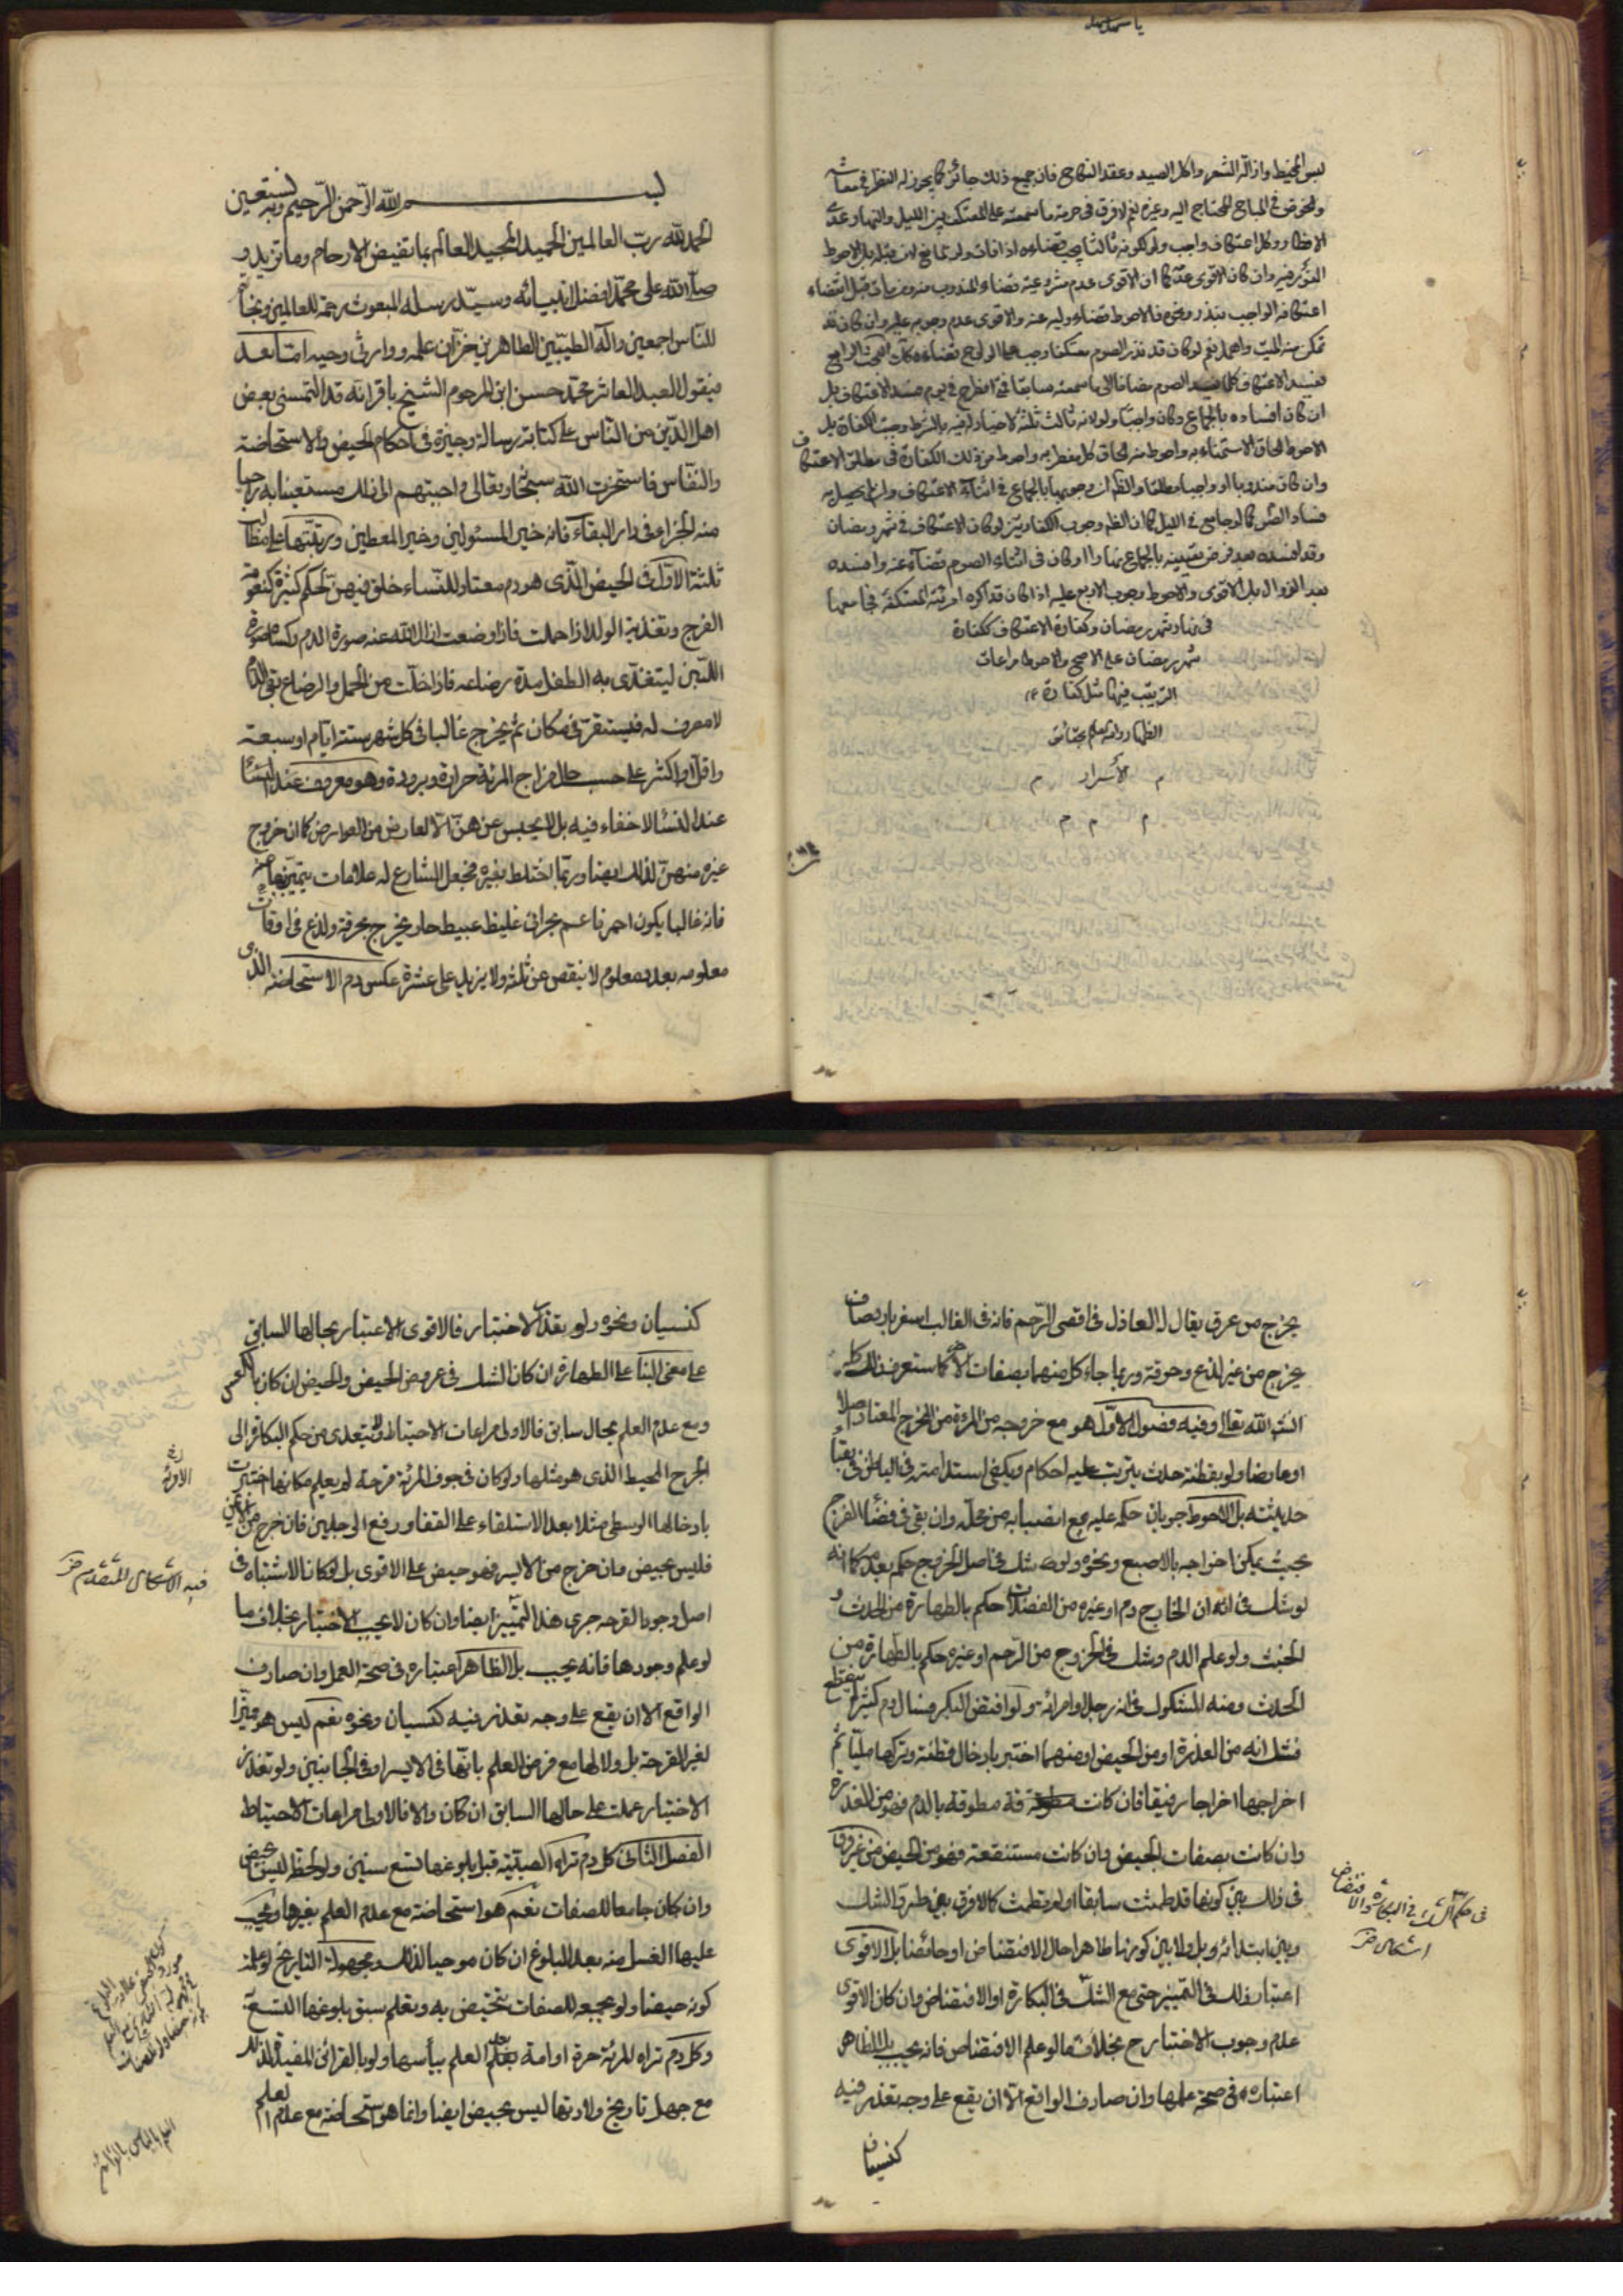 لبس المخيط وازالة الشعر واكل الصيد وعقد النكاح فان جميع ذلك جائز كما يجوز له النظر في معاشه
والخوض في المباح المحتاج اليه وغيره نعم لا فرق في حرمة ما سمعته على المعتكف بين الليل والنهار عدى
الافطار وكل اعتكاف واجب ولو لكونه ثالثا يجب قضاؤه اذا فات ولو لمانع
الفور فيه وان كان الاقوى عدمه كما ان الاقوى عدم مشروعية قضاء المندوب منه ومن مات قبل انقضاء
اعتكافه الواجب بنذر ونحوه فالاحوط قضاء وليه عنه والاقوى عدم وجوبه عليه وان كان قد
تمكن منه الميت واهمل نعم لو كان قد نذر الصوم معتكفا وجب على الولي قضاءه
يفسد الاعتكاف كلما يفسد الصوم مضافا الى ما سمعته سابقا
ان كان افساده بالجماع وكان واجبا ولو لانه ثالث ثلثة لا خيار له فيه بالشرط وجبت الكفارة بل
الاحوط الحاق الاستمناء به واحوط منه الحاق كل مفطر به واحوط من ذلك الكفارة في مطلق الاعتكاف
وان كان مندوبا او واجبا مطلقا والظاهر وجوبها بالجماع في اثناء الاعتكاف وان لم يحصل به
فساد الصوم كما لو جامع في الليل كما ان الظاهر وجوب الكفارتين لو كان الاعتكاف في شهر رمضان
وقد افسده بعد فرض تعيينه بالجماع نهارا او كان في اثناء الصوم قضاء عنه وافسده
بعد الزوال بل الاقوى والاحوط وجوب الاربع عليه اذا كان قد اكره امرئته المعتكفة فجامعها
في نهار شهر رمضان وكفارة الاعتكاف ككفارة
شهر رمضان على الاصح والاحوط مراعات
الترتيب فيها مثل كفارة
الظهار والله العالم بحقائق
الأسرار
م م م
بسم الله الرحمن الرحيم وبه نستعين
الحمد لله رب العالمين الحميد المجيد العالم بما تغيض الارحام وما تزيد و
صلى الله على محمد افضل انبيائه وسيد رسله المبعوث رحمة للعالمين ونجاة
للناس اجمعين وآله الطيبين الطاهرين خزان علمه ووارثي وحيه اما بعد
فيقول العبد العاثر محمد حسن ابن المرحوم الشيخ باقر انه قد التمسني بعض
اهل الدين من الناس على كتابة رسالة وجيزة في احكام الحيض والاستحاضة
والنفاس فاستخرت الله سبحانه وتعالى واجبتهم الى ذلك مستعينا به راجيا
منه الجزاء في دار البقاء فانه خير المسئولين وخير المعطين ورتبتها على مطالب
ثلثة الاول في الحيض الذى هو دم معتاد للنساء خلق فيهن لحكم كثيرة كتقوية
الفرج وتغذية الولد اذا حملت فاذا وضعت ازال الله عنه صورة الدم وكساه صورة
اللبن ليتغذى به الطفل مدة رضاعه فاذا خلت من الحمل والرضاع بقى الدم
لا مصرف له فيستقر في مكان ثم يخرج غالبا في كل شهر ستة ايام او سبعة
واقل او اكثر على حسب حال مزاج المرئة حرارة وبرودة وهو معروف عند النساء
عند النساء لا خفاء فيه بل لا يحبس عن هن الا لعارض من العوارض كما ان خروج
غيره منهن لذلك ايضا وربما اختلط بغيره فجعل الشارع له علامات يتميز بها عنه
فانه غالبا يكون احمر ناعم بحراني غليظ عبيط حار يخرج بحرقة ولذع في اوقات
معلومه بعدد معلوم لا ينقص عن ثلثة ولا يزيد على عشرة عكس دم الاستحاضة الذى
يخرج من عرق يقال له العاذل في اقصى الرحم فانه في الغالب اصفر بارد صاف
يخرج من غير لذع وحرقة وربما جاء كل منهما بصفات الاخر كما ستعرف ذلك كله
انشاء الله تعالى وفيه فصول الاول هو مع خروجه من المرئة من المخرج المعتاد اصلا
او عارضا ولو بقطنة حدث يترتب عليه احكام ويكفى استدامته في الباطن في بقاء
حدثيته بل الاحوط جريان حكمه عليه مع انصبابه من محله وان بقى في فضاء الفرج
بحيث يمكن اخراجه بالاصبع ونحوه ولو شك في اصل الخروج حكم بعدمه كما انه
لو شك في ان الخارج دم او غيره من الفضلات حكم بالطهارة من الحدث و
الخبث ولو علم الدم وشك في الخروج من الرحم او غيره حكم بالطهارة من
الحدث ومنه المشكوك في انه رجل او امرائة ولو افتض البكر فسال دم كثير لم ينقطع
فشك انه من العذرة او من الحيض او منهما اختبر بادخال قطنة وتركها مليا ثم
اخراجها اخراجا رفيقا فان كانت مطوقة بالدم فهو من العذرة
وان كانت بصفات الحيض وان كانت مستنقعة فهو من الحيض من غير فرق
في ذلك بين كونها قد طمثت سابقا او لم تطمث كما لا فرق بين طرو الشك
وبين ابتدائه وبل ولا بين كونها طاهرا حال الافتضاض او حائضا بل الاقوى
اعتبار ذلك في التمييز حتى مع الشك في البكارة او الافتضاض وان كان الاقوى
عدم وجوب الاختبار ح بخلاف ما لو علم الافتضاض فانه يجب بل الظاهر
اعتباره في صحة عملها وان صادف الواقع الا ان يقع على وجه تعذر فيه
كنسيان
في حكم الشك في البكارة والافتضاض
اشكال
كنسيان ونحوه ولو تعذر الاختبار فالاقوى الاعتبار بحالها السابق
على معنى البناء على الطهارة ان كان الشك في عروض الحيض والحيض ان كان بالعكس
ومع عدم العلم بحال سابق فالاولى مراعات الاحتياط ولا يتعدى من حكم البكارة الى
الجرح المحيط الذى هو مثلها ولو كان في جوف المرئة قرحة لم يعلم مكانها اختبرت
بادخالها الوسطى مثلا بعد الاستلقاء على القفا ورفع الرجلين فان خرج من الايمن
فليس بحيض وان خرج من الايسر فهو حيض على الاقوى بل لو كان الاشتباه في
اصل وجود القرحه جرى هذا التمييز ايضا وان كان لا يجب الاختبار بخلاف ما
لو علم وجودها فانه يجب بل الظاهر اعتباره في صحة العمل وان صادف
الواقع الا ان يقع على وجه تعذر فيه كنسيان ونحوه نعم ليس هو مميزا
لغير القرحة بل ولا لها مع فرض العلم بانها في الايسر او في الجانبين ولو تعذر
الاختبار عملت على حالها السابق ان كان والا فالاولى مراعات الاحتياط
الفصل الثانى كل دم تراه الصبية قبل بلوغها تسع سنين ولو لحظة ليس بحيض
وان كان جامعا للصفات نعم هو استحاضة مع عدم العلم بغيرها ويجب
عليها الغسل منه بعد البلوغ ان كان موجبا لذلك ومجهولة التاريخ لو علمت
كونه حيضا ولو بجمعه للصفات تتحيض به وتعلم سبق بلوغها التسع
وكل دم تراه المرئة حرة او امة بعد العلم بيأسها ولو بالقرائن المفيدة لذلك
مع جهل تاريخ ولادتها ليس بحيض ايضا وانما هو استحاضة مع عدم العلم
فيه الاشكال المتقدم